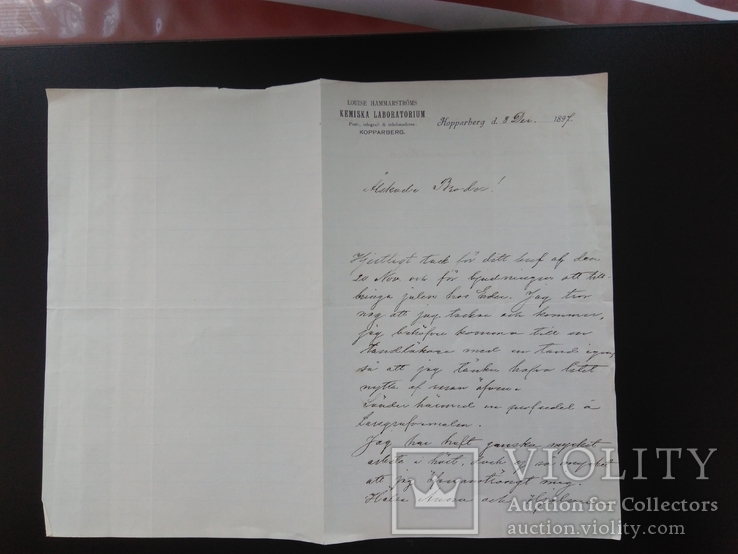 LOUISE HAMMARSTRÖMS
KEMISKA LABORATORIUM
KOPPARBERG.
Kopparberg d. 8 Dec. 1897.
Älskade Broder!
Hjertligt tack för ditt bref af den
20 Nov. och för bjudningen att till
bringa julen hos Eder. Jag tror
nog att jag tackar och kommer,
jag behöfver komma till en
tandläkare med en tand igen,
så att jag tänker hafva litet
nytta af resan äfven.
Sänder härmed en
Jag har haft ganska mycket
arbete i höst, dock ej så mycket
att jag öfveransträngt mig.
Helsa Anna och
VIOLITY
Auction for Collectors
auction.violity.com